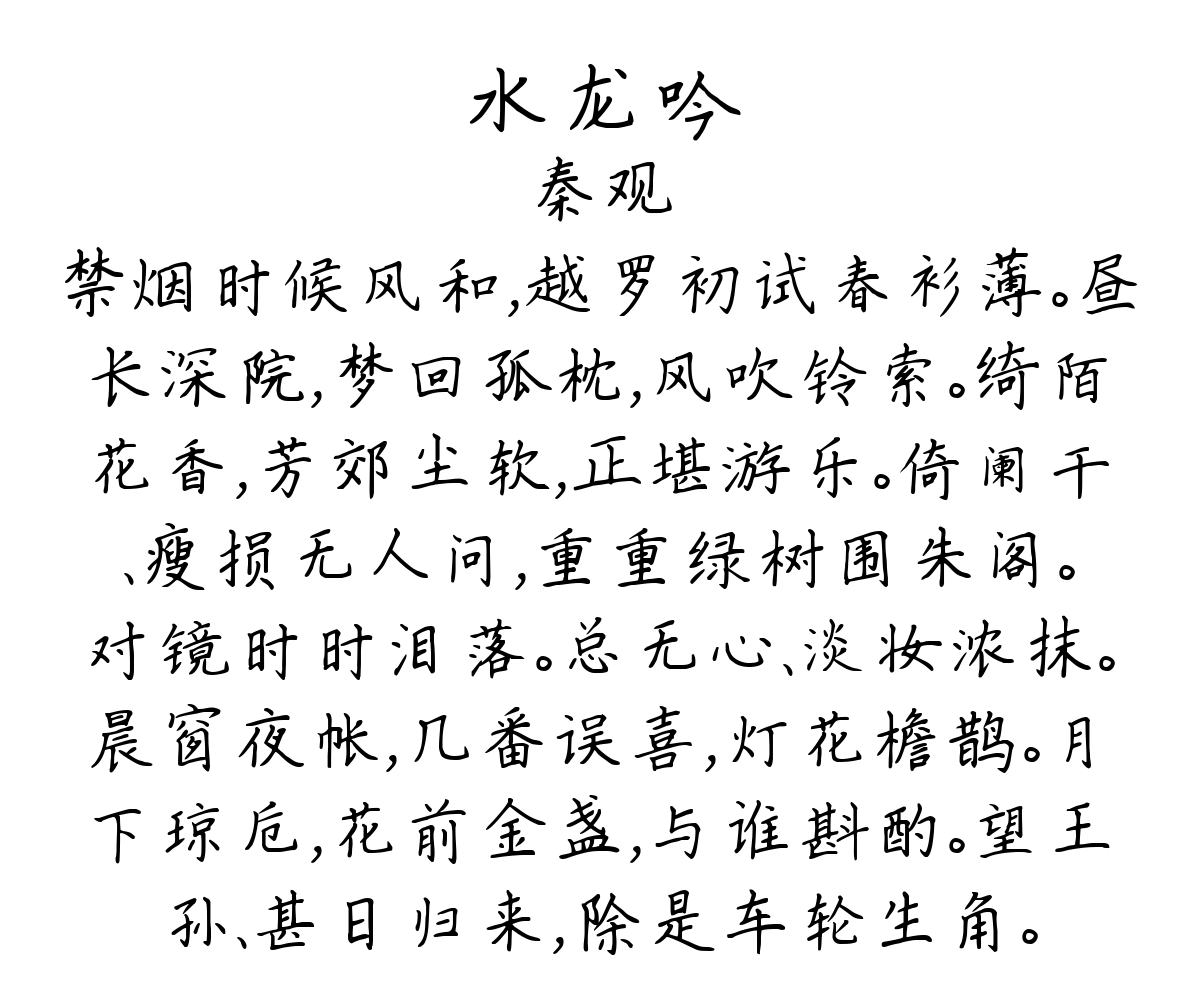 水龙吟
秦观
禁烟时候风和,越罗初试春衫薄。昼
长深院,梦回孤枕,风吹铃索。绮陌
花香,芳郊尘软,正堪游乐。倚阑干
、瘦损无人问,重重绿树围朱阁。
对镜时时泪落。总无心、淡妆浓抹。
晨窗夜帐,几番误喜,灯花檐鹊。月
下琼卮,花前金盏,与谁斟酌。望王
孙、甚日归来,除是车轮生角。